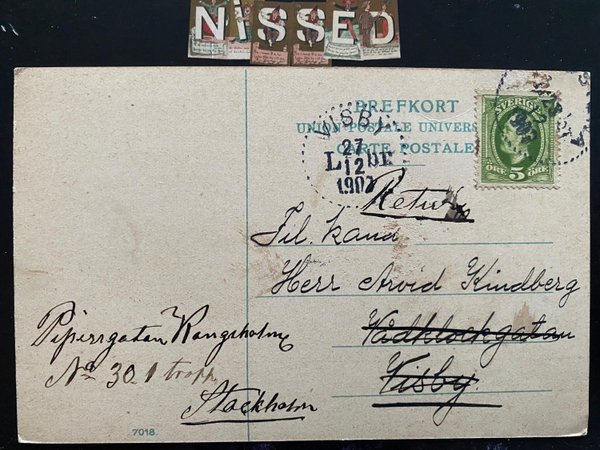 NISSED
BREFKORT
UNION POSTALE UNIVERS
CARTE POSTALE
SVERIGE
ÖRE 5 ÖRE
VISBY
27
12
1907
LBR
Retur
Fil. kand
Herr Arvid Kindberg
Vådklockgatan
Visby.
Pipersgatan Kungsholm
No 30. 1 trapp
Stockholm
7018.